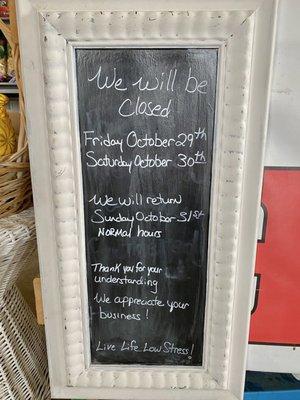 We will be
Closed
Friday October 29th
Saturday October 30th
We will return
Sunday October 31st
NORMAL hours
Thank you for your
understanding
We appreciate your
business!
Live Life Low Stress!